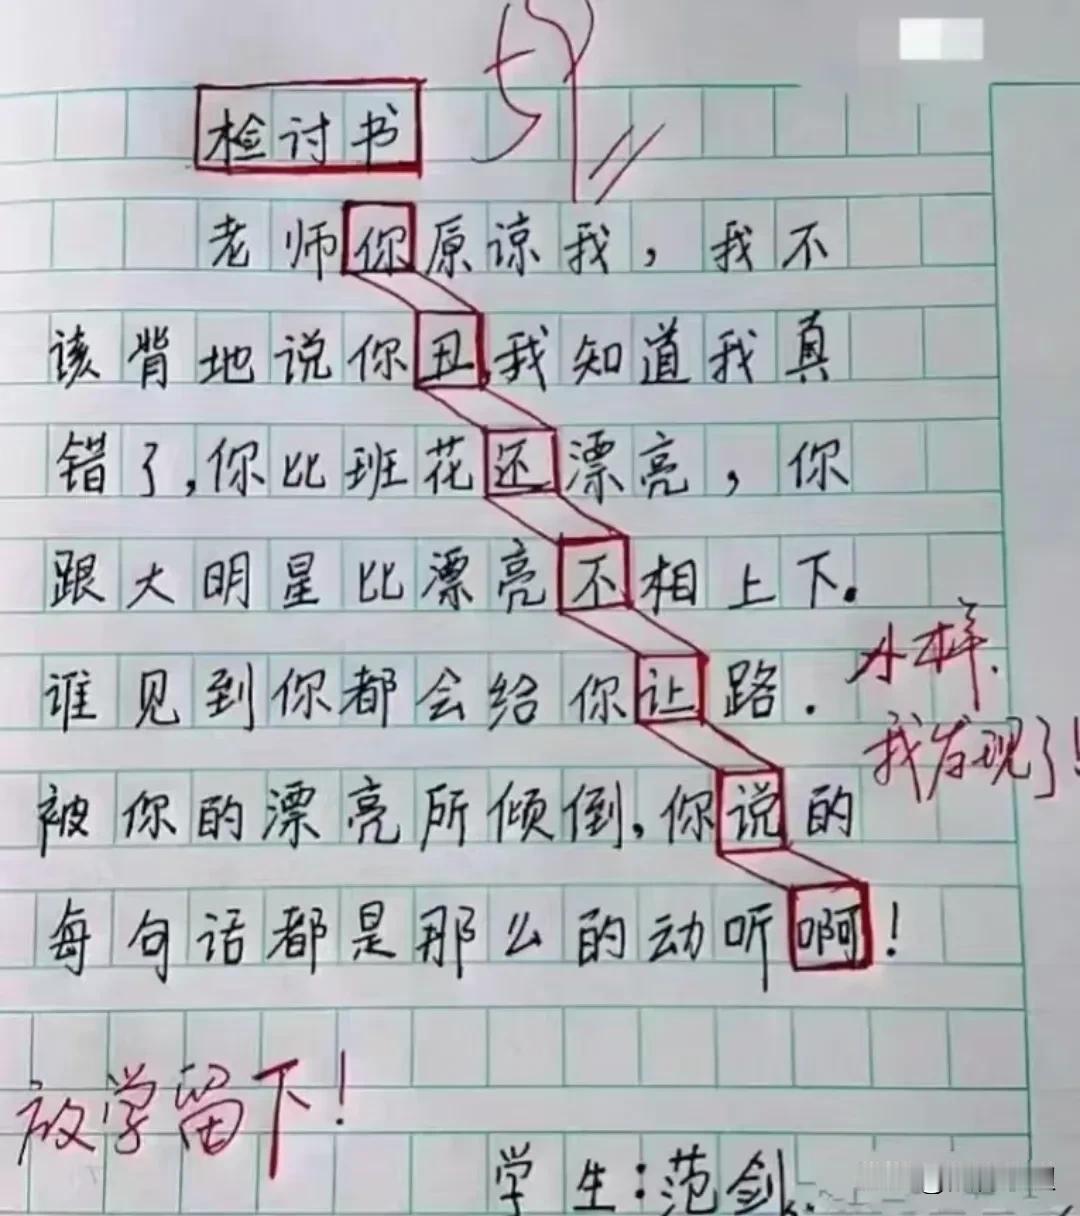 检讨书
老师你原谅我，我不
该背地说你丑,我知道我真
错了,你比班花还漂亮，你
跟大明星比漂亮不相上下.
小样.
谁见到你都会给你让路.
我发现了!
被你的漂亮所倾倒,你说的
每句话都是那么的动听啊!
放学留下!
学生:范剑.